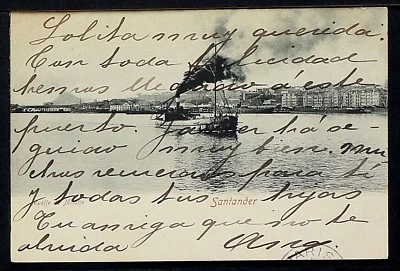 Lolita muy querida:
Con toda felicidad
hemos llegado á este
puerto. há se-
guido muy bien. mu
chos recuerdos para tí
y todas tus hijas
Santander
Tu amiga que no te
olvida Ana.
PARIS